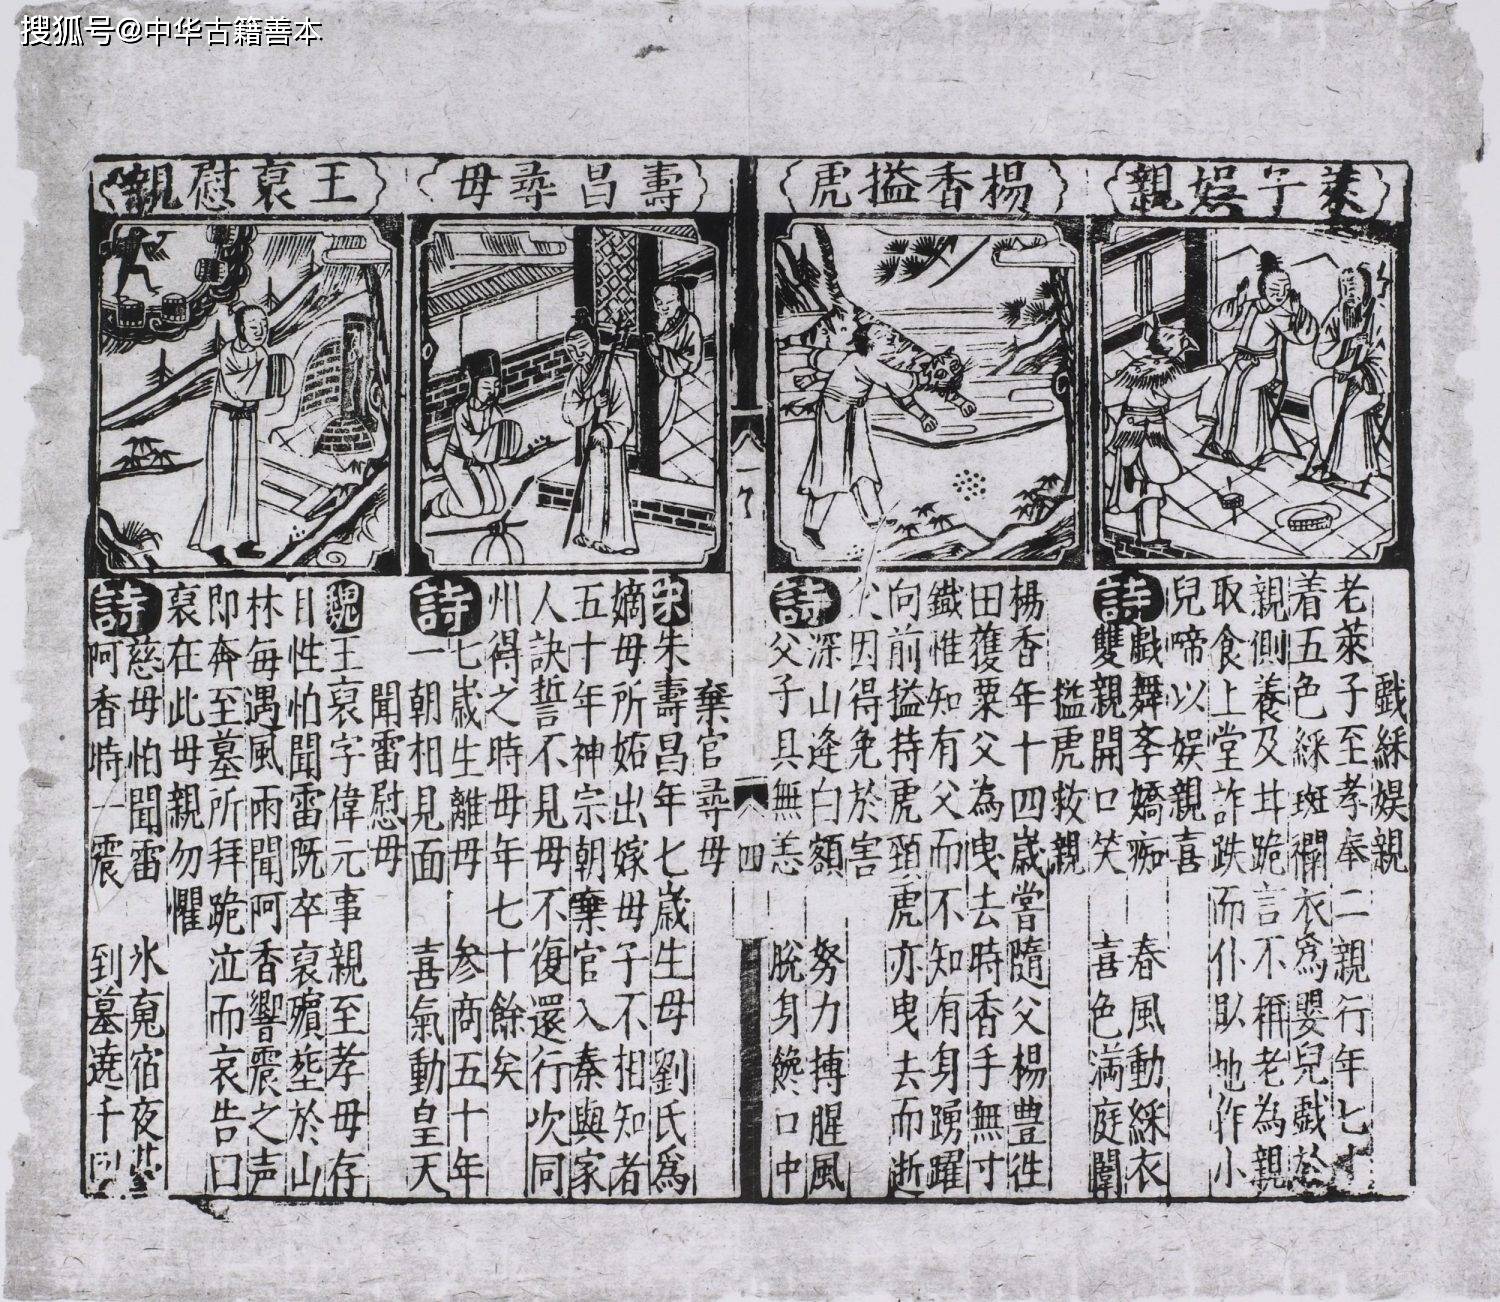 搜狐号@中华古籍善本
萊子娯親
戲綵娯親
老萊子至孝奉二親行年七十
着五色綵斑斕衣爲嬰兒戲於
親側養及廾跪言不稱老為親
取食上堂詐跌而仆臥地作小
兒啼以娯親喜
詩
戲舞斈嬌痴 春風動綵衣
雙親開口笑 喜色滿庭闈
楊香搤虎
搤虎救親
楊香年十四歲嘗隨父楊豊徃
田獲粟父為曳去時香手無寸
鐵惟知有父而不知有身踴躍
向前搤持虎頸虎亦曳去而逝
父因得免於害
詩
深山逢白額 努力搏腥風
父子具無恙 脫身饞口中
四
壽昌尋母
棄官尋母
宋朱壽昌年七歲生母劉氏爲
嫡母所妬出嫁母子不相知者
五十年神宗朝棄官入秦與家
人訣誓不見母不復還行次同
州得之時母年七十餘矣
詩
七歲生離母 參商五十年
一朝相見面 喜氣動皇天
王裒慰親
聞雷慰母
魏王裒字偉元事親至孝母存
日性怕聞雷既卒裒殯塟於山
林每遇風雨聞阿香響震之声
即奔至墓所拜跪泣而哀告曰
裒在此母親勿懼
詩
慈母怕聞雷 氷䰟宿夜
阿香時一震 到墓遶千